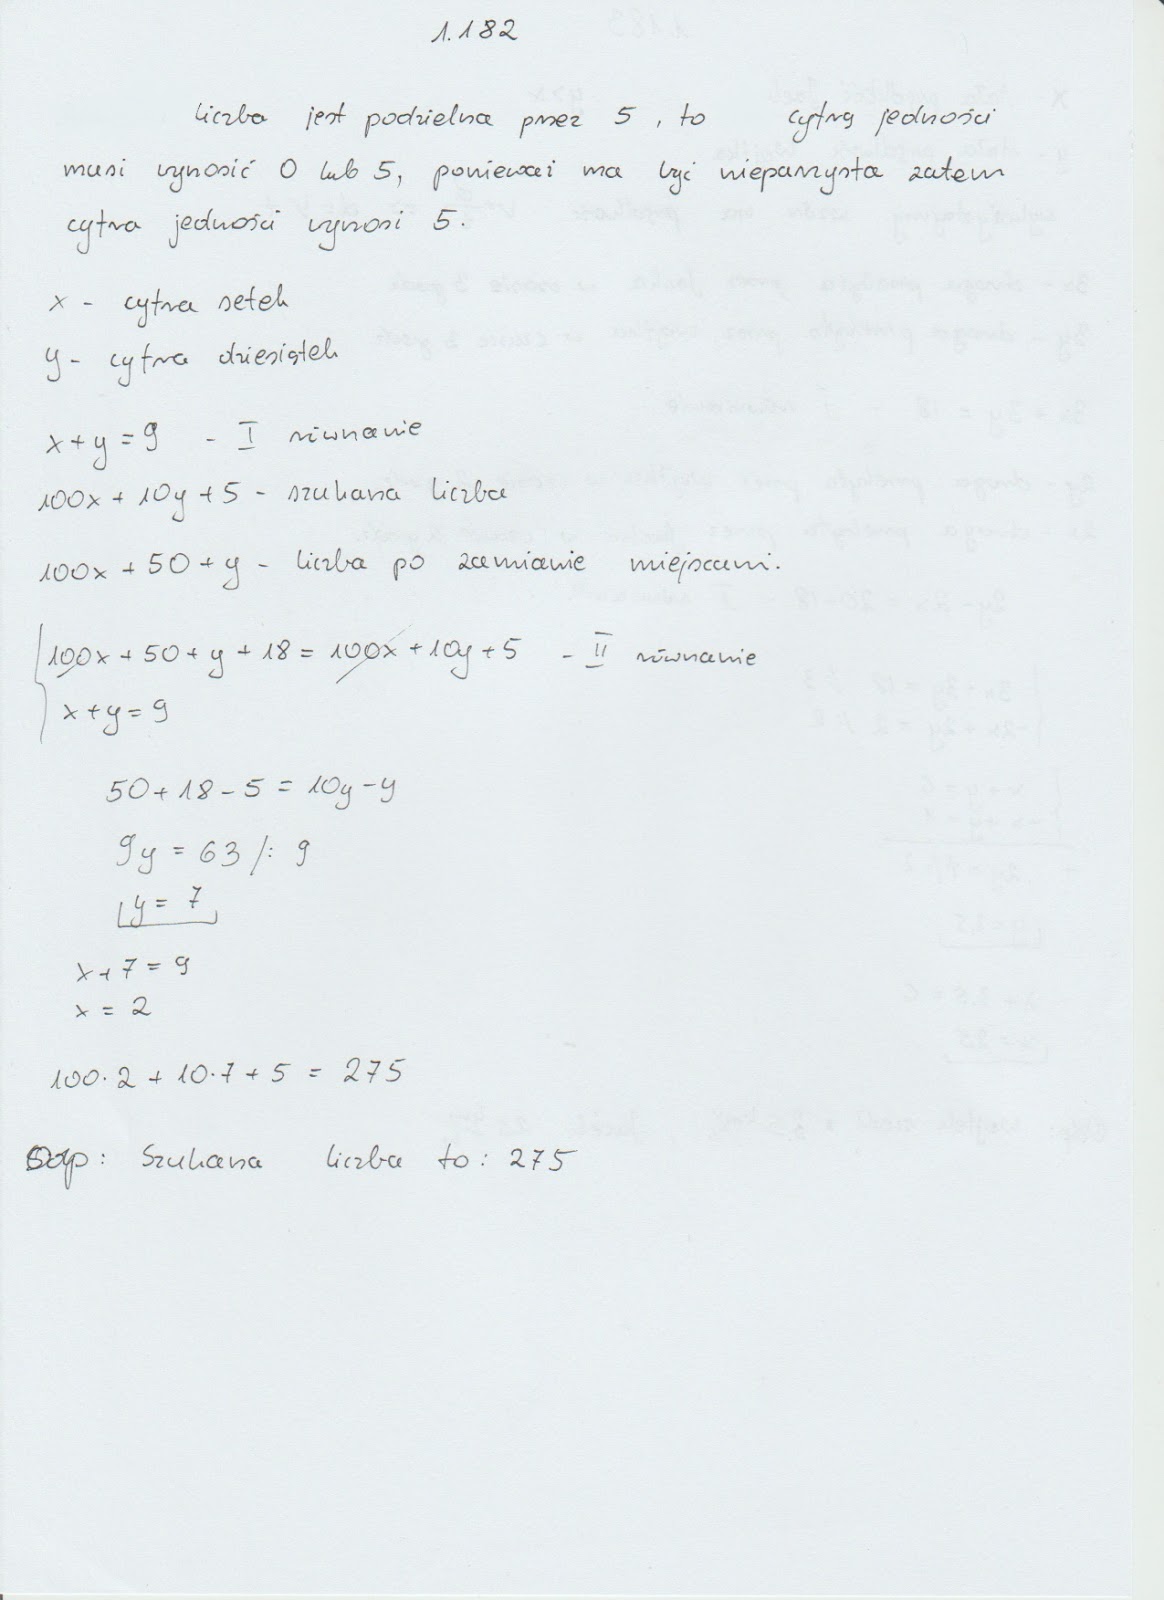 1.182
liczba jest podzielna przez 5, to cyfrą jedności
musi wynosić 0 lub 5, ponieważ ma być nieparzysta zatem
cyfra jedności wynosi 5.
x - cyfra setek
y - cyfra dziesiątek
x+y=9 - I równanie
100x + 10y + 5 - szukana liczba
100x + 50 + y - liczba po zamianie miejscami.
100x + 50 + y + 18 = 100x + 10y + 5 - II równanie
x+y=9
50+18-5 = 10y-y
9y = 63 /: 9
y = 7
x+7=9
x = 2
100·2 + 10·7 + 5 = 275
Odp: Szukana liczba to: 275